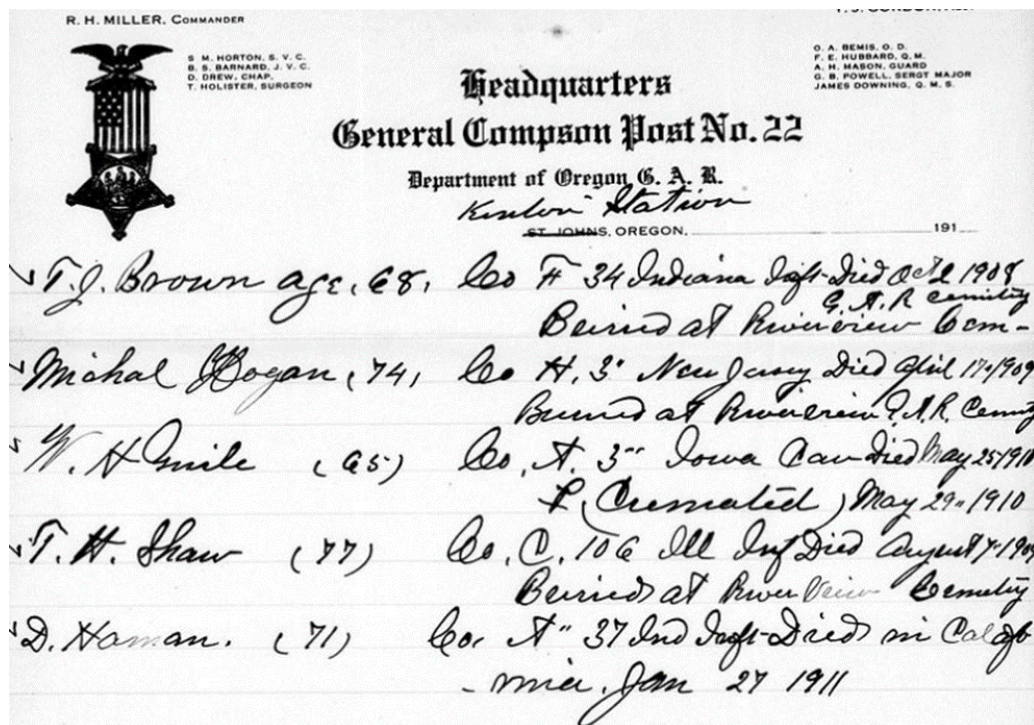 R. H. MILLER, COMMANDER
S. M. HORTON, S. V. C.
B. S. BARNARD, J. V. C.
D. DREW, CHAP.
T. HOLISTER, SURGEON
O. A. BEMIS, O. D.
F. E. HUBBARD, Q. M.
A. H. MASON, GUARD
G. B. POWELL, SERGT MAJOR
JAMES DOWNING, Q. M. S.
Headquarters
General Compson Post No. 22
Department of Oregon G. A. R.
Kenton Station
ST. JOHNS, OREGON, 191
T. J. Brown age, 68, Co F 34 Indiana Inft Died Oct 2 1908
G. A. R cemetry
Beiried at Riverview Cem-
Michal Hogan (74) Co H. 3" New Jersy Died April 17" 1909
Buried at Riverview G.A.R. Cemty
W. H (65) Co, A. 3" Iowa Cav Died May 25 1910
(Cremated) May 29" 1910
T. H. Shaw (77) Co, C. 106 Ill Inf Died August 7"
Beiried at River View Cemetry
D. Haman. (71) Co, A" 37 Ind Inft Died in Califor
-nia. Jan 27 1911